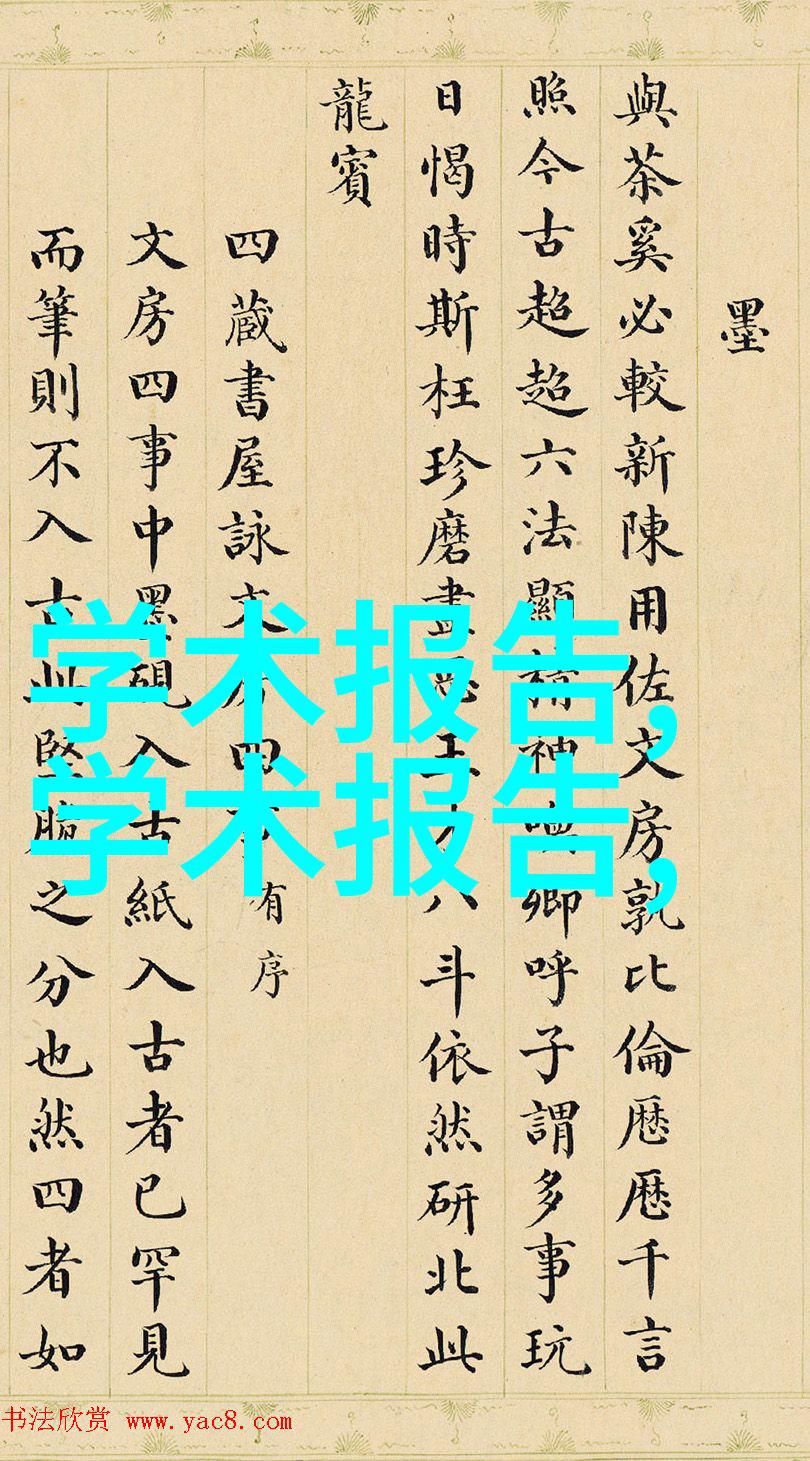 墨
與茶奚必較新陳用佐文房孰比倫歷歷千言
照今古超超六法顯精神喚卿呼子謂多事玩
日愒時斯枉珍磨盡王才八斗依然研北此
龍賓
四蔵書屋詠文房四有序
文房四事中墨硯入古紙入古者已罕見
而筆則不入古此堅脆之分也然四者如
学术报告,
学术报告,
书法欣赏 www.yac8.com